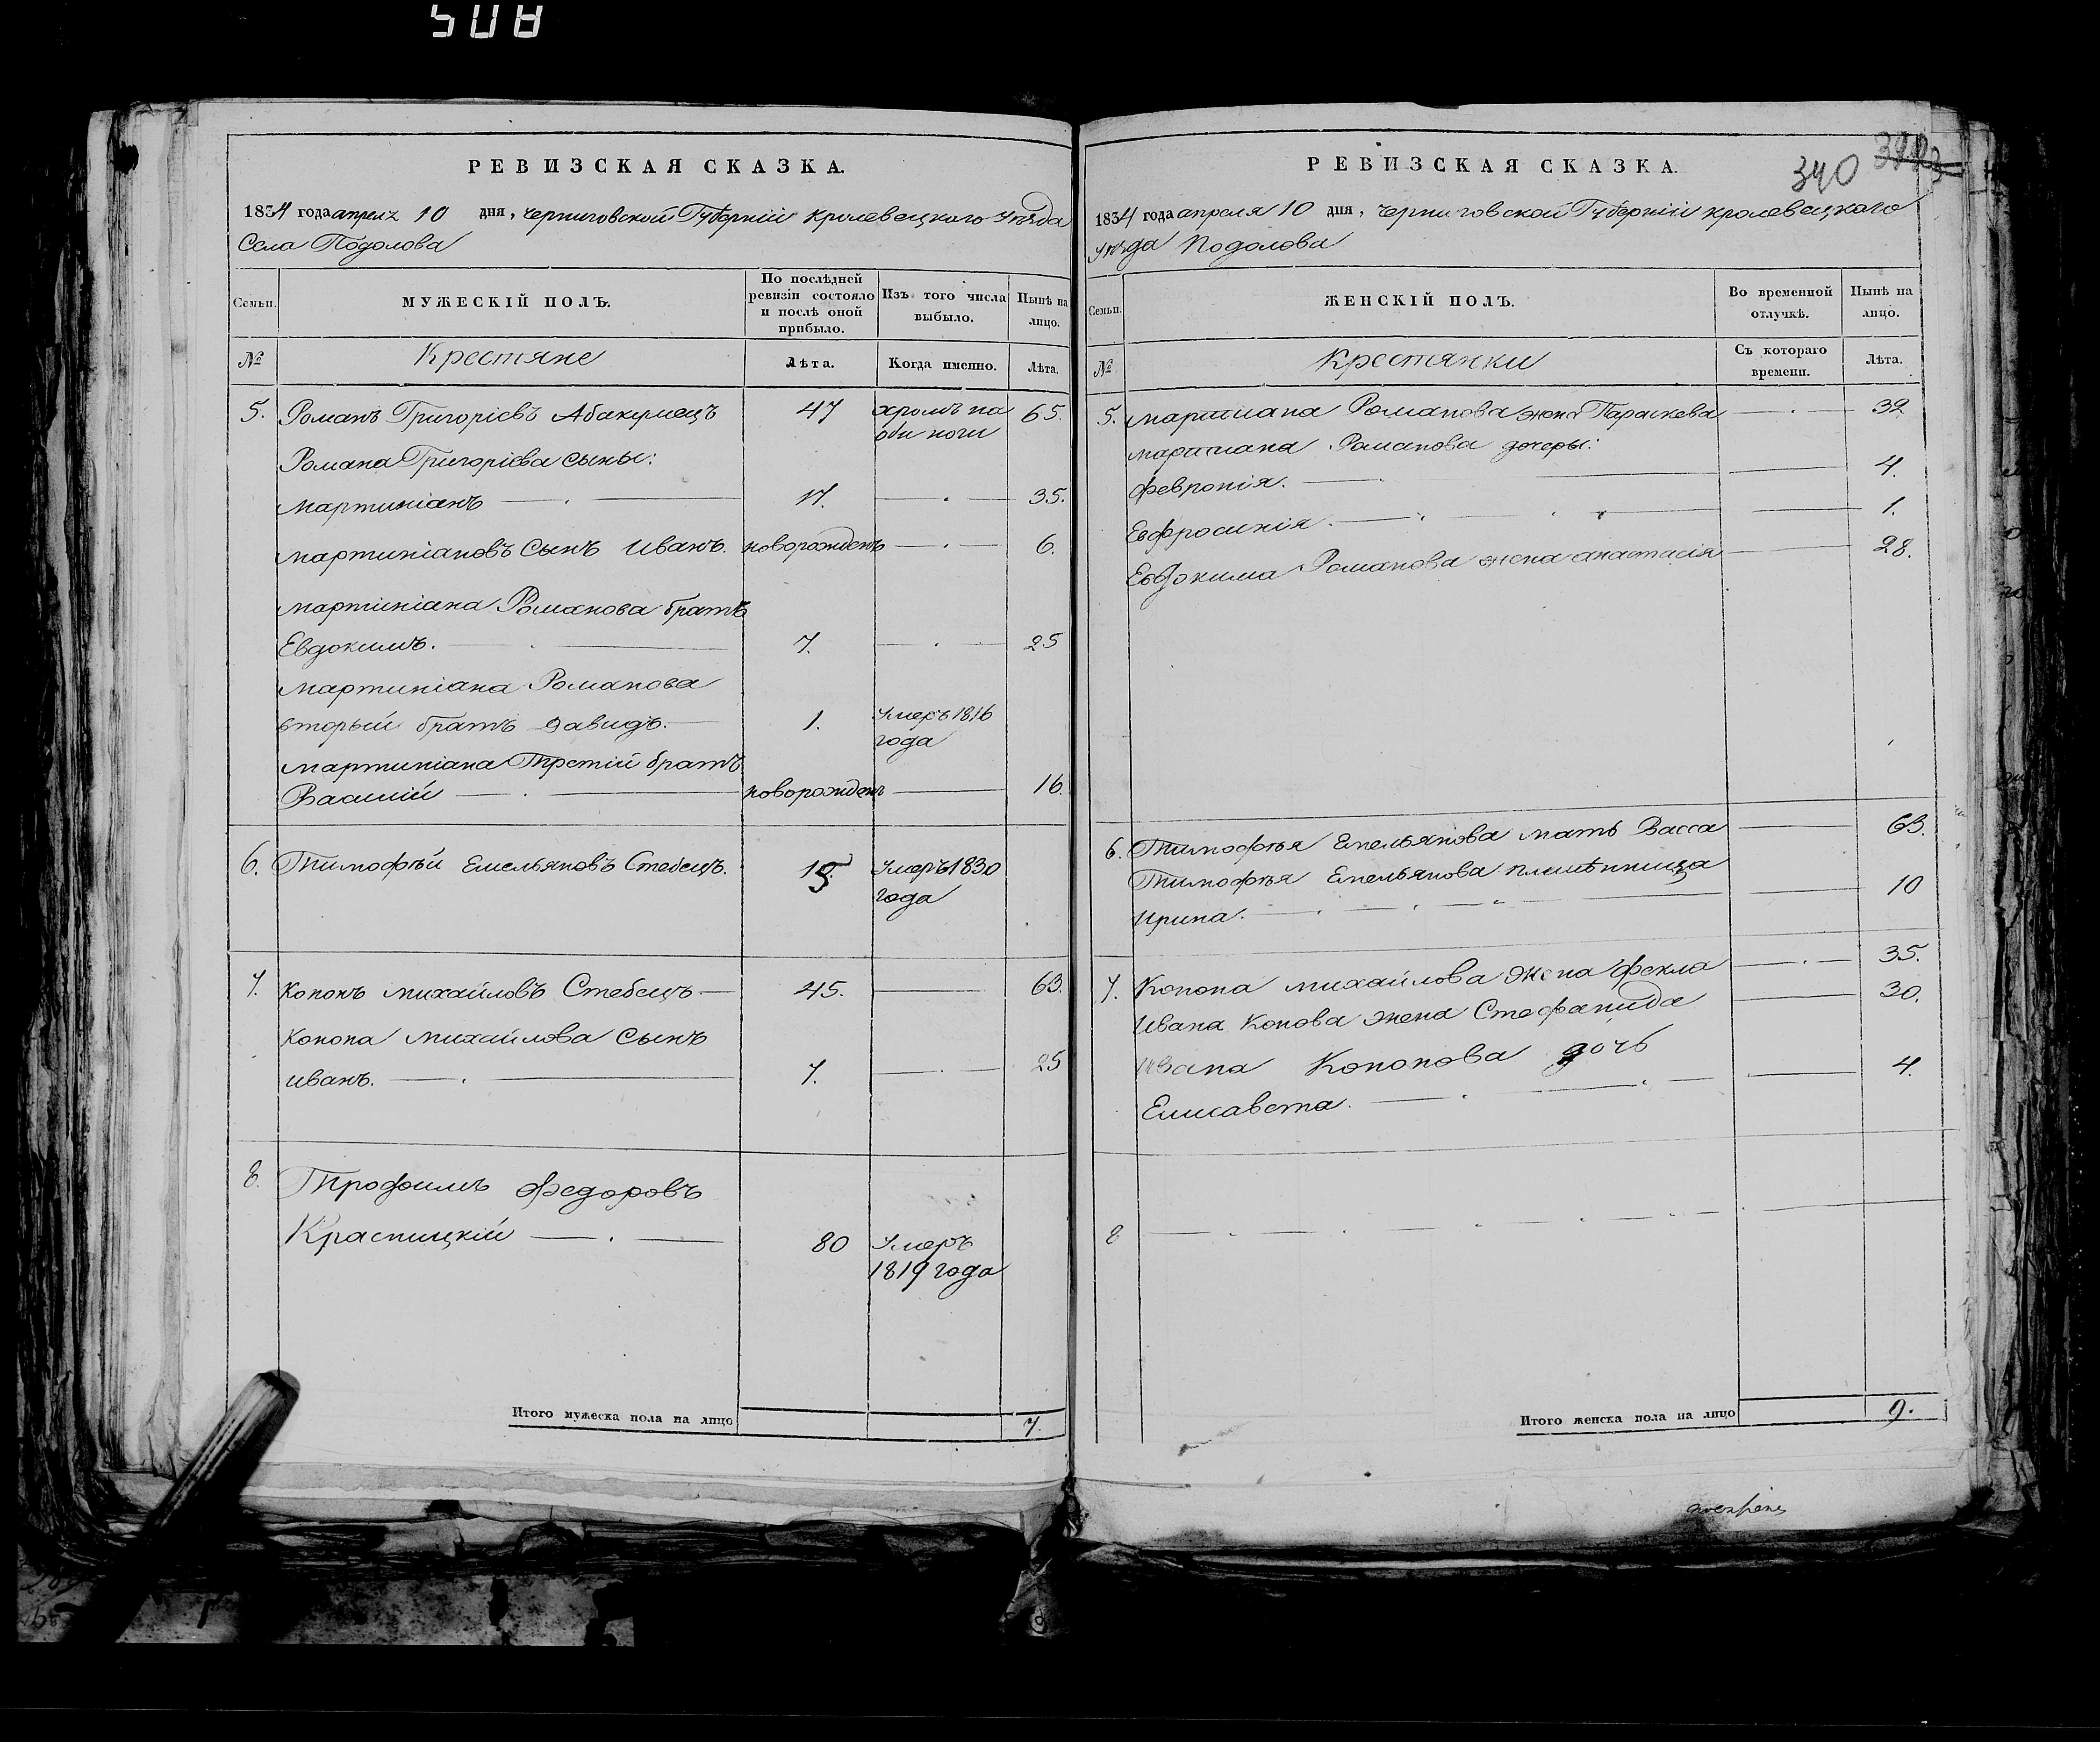 508
РЕВИЗСКАЯ СКАЗКА.
1834 года апреля 10 дня, Черниговской Губерніи Кролевецкого Уѣзда
Села Подолова
Семьи.
МУЖЕСКІЙ ПОЛЪ.
По послѣдней ревизіи состояло и послѣ оной прибыло.
Изъ того числа выбыло.
Нынѣ на лицо.
№
Крестяне
Лѣта.
Когда именно.
Лѣта.
5. Романъ Григоріевъ Абакумецъ 47 хромъ на 65.
оби ноги
Романа Григоріева сыны:
Мартиніанъ 17. 35.
Мартиніановъ сынъ Иванъ. новорожденъ 6.
Мартиніана Романова братъ
Евдокимъ. 7. 25
Мартиніана Романова
вторый братъ Давидъ. 1. Умеръ 1816
года
Мартиніана Третій братъ
Василій новорожденъ 16.
6. Тимофѣй Емельяновъ Стебецъ. 15 Умеръ 1830
года
7. Кононъ Михайловъ Стебецъ 45. 63.
Конона Михайлова сынъ
Иванъ. 7. 25
8. Трофимъ Федоровъ
Красницкій 80 Умеръ
1819 года
Итого мужеска пола на лицо 7.
340
РЕВИЗСКАЯ СКАЗКА.
1834 года апреля 10 дня, Черниговской Губерніи Кролевецкаго
Уѣзда Подолова
Семьи.
ЖЕНСКІЙ ПОЛЪ.
Во временной отлучкѣ.
Нынѣ на лицо.
№
Крестянки
Съ котораго времени.
Лѣта.
5. Мартиана Романова жена Параскева 32
Мартиана Романова дочеры:
Февронія. 4.
Евфросинія. 1.
Евдокима Романова жена Анастасія 28.
6. Тимофѣя Емельянова мать Васса 63.
Тимофѣя Емельянова племѣнница
Ирина. 10
7. Конона Михайлова жена Фекла 35.
Ивана Конова жена Стефанида 30.
Ивана Кононова дочь
Елисавета. 4.
8
Итого женска пола на лицо 9.